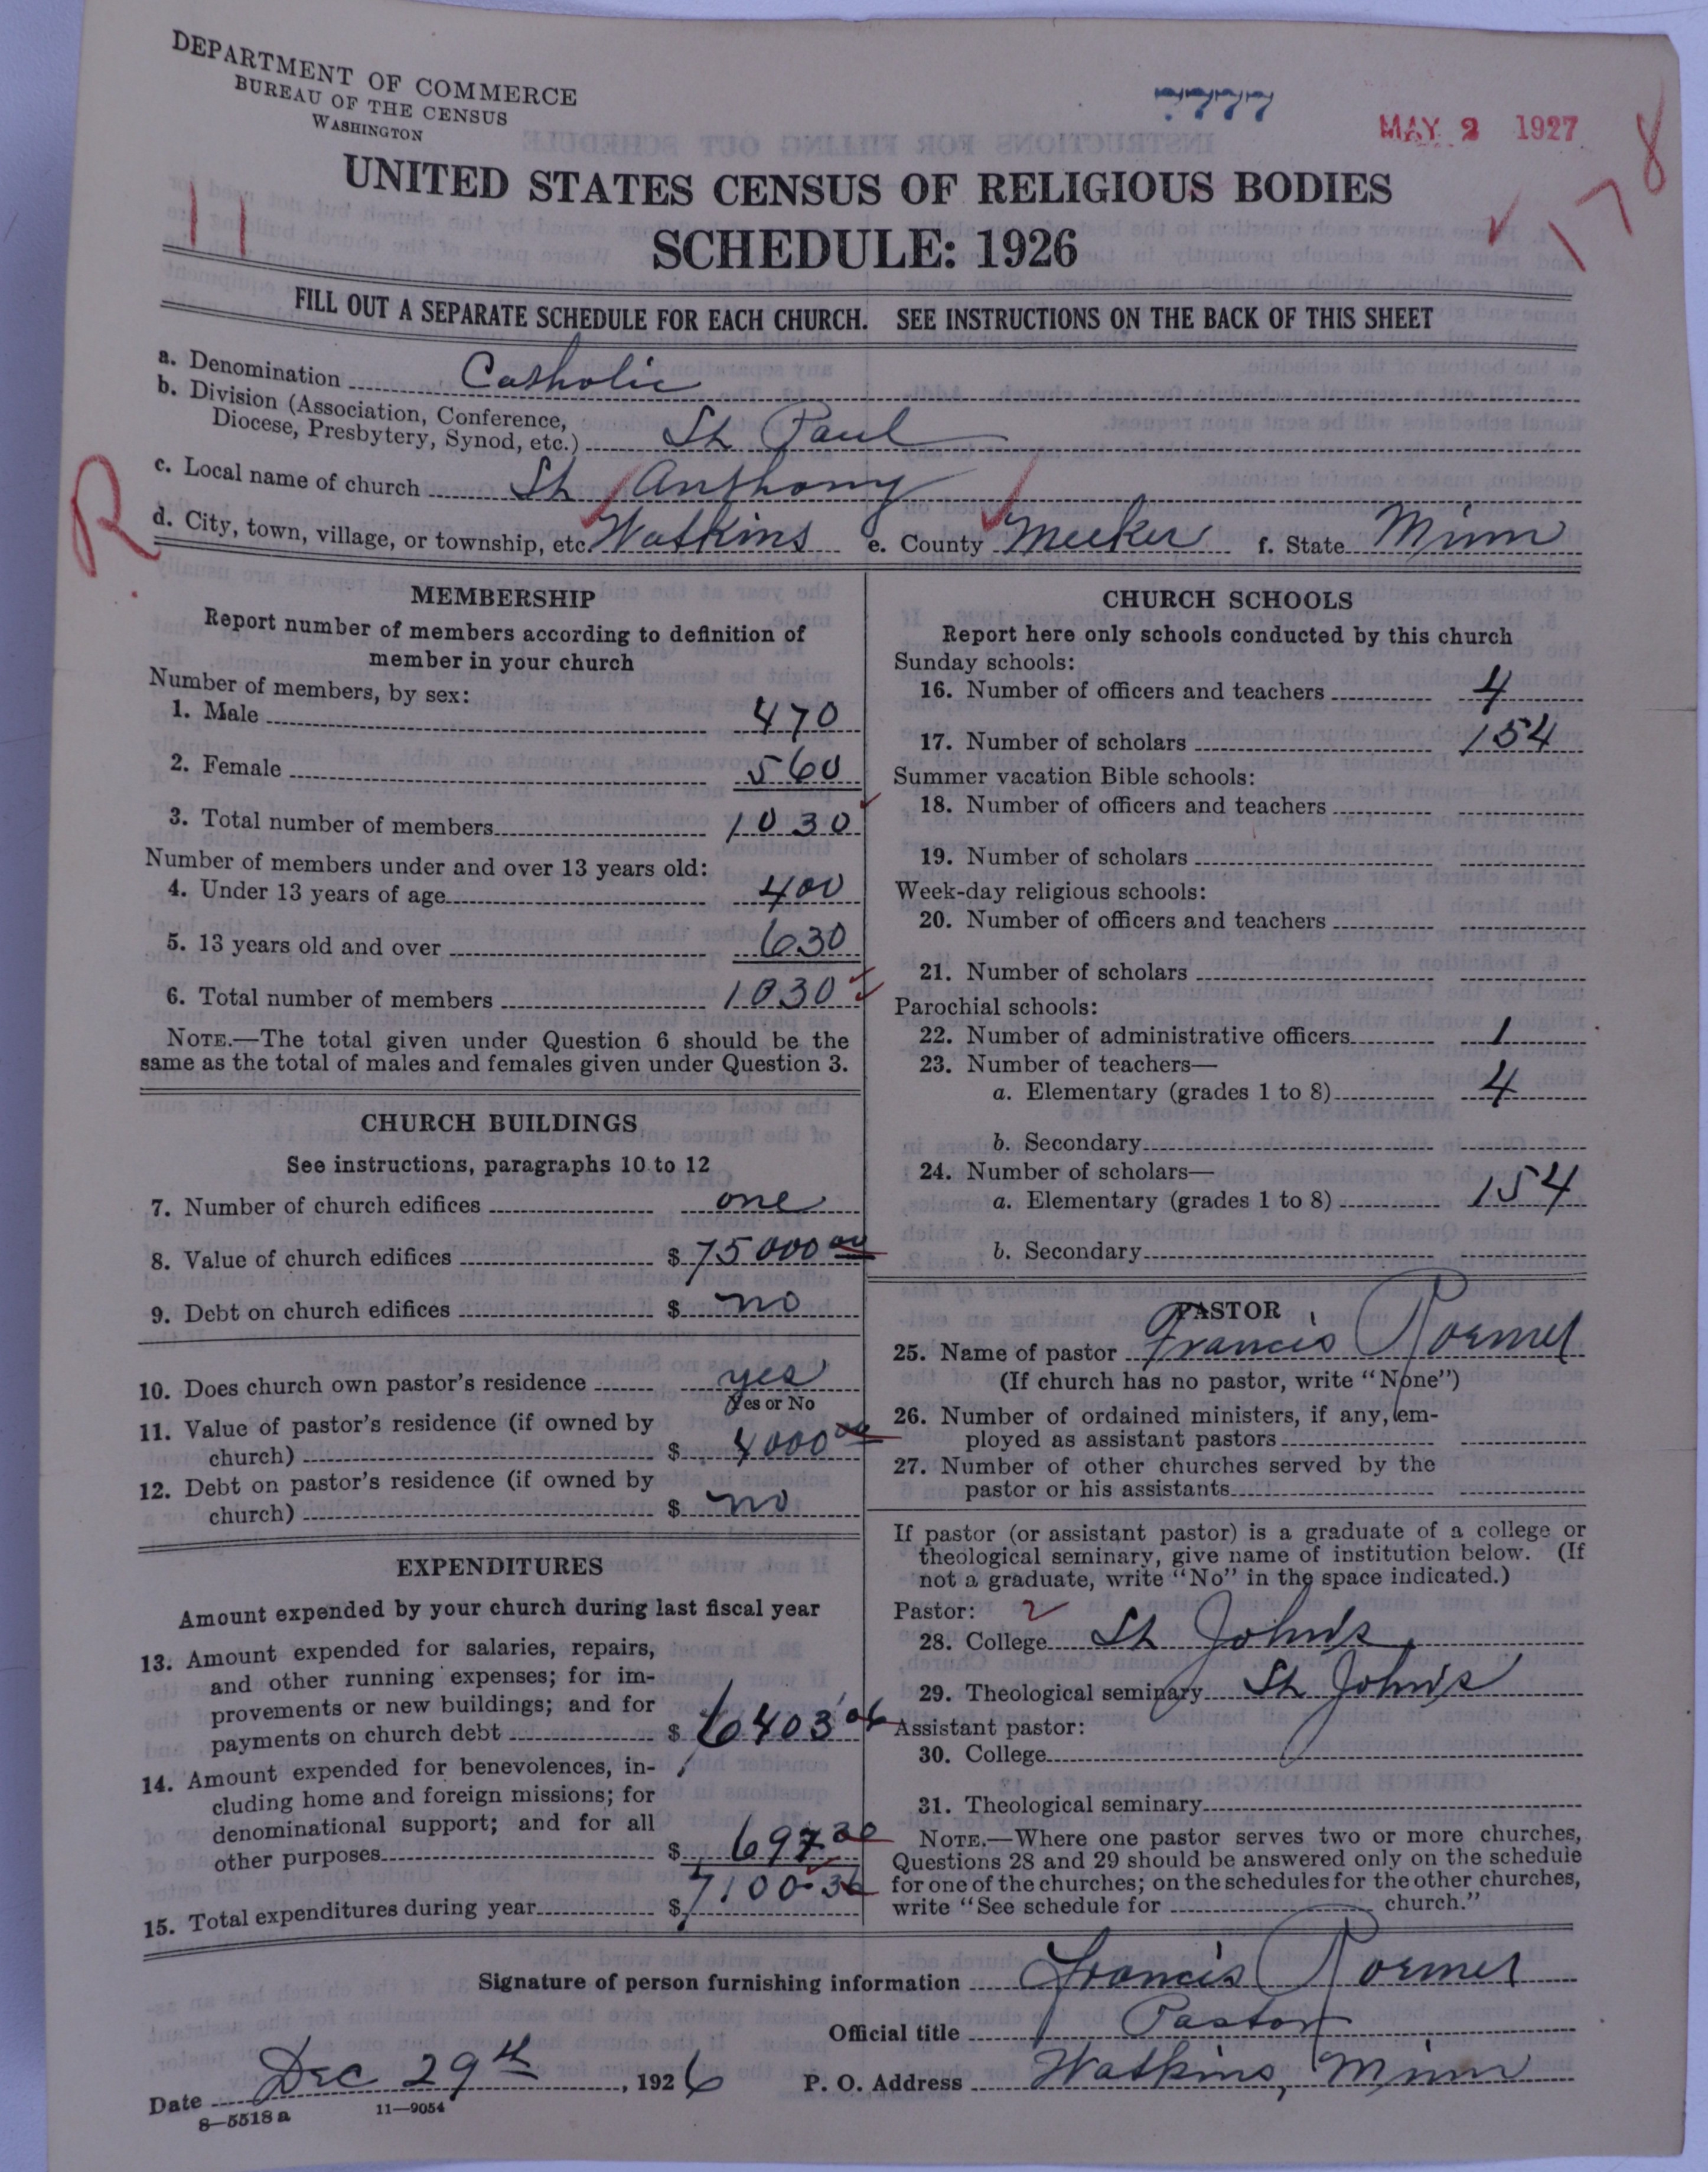 DEPARTMENT OF COMMERCE
BUREAU OF THE CENSUS
WASHINGTON
MAY 2 1927
178
11
UNITED STATES CENSUS OF RELIGIOUS BODIES
SCHEDULE: 1926
FILL OUT A SEPARATE SCHEDULE FOR EACH CHURCH. SEE INSTRUCTIONS ON THE BACK OF THIS SHEET
a. Denomination Catholic
b. Division (Association, Conference,
Diocese, Presbytery, Synod, etc.) St Paul
c. Local name of church St Anthony
R
d. City, town, village, or township, etc. Watkins e. County Meeker f. State Minn
MEMBERSHIP
Report number of members according to definition of
member in your church
Number of members, by sex:
1. Male 470
2. Female 560
3. Total number of members 1030
Number of members under and over 13 years old:
4. Under 13 years of age 400
5. 13 years old and over 630
6. Total number of members 1030
NOTE.—The total given under Question 6 should be the
same as the total of males and females given under Question 3.
CHURCH BUILDINGS
See instructions, paragraphs 10 to 12
7. Number of church edifices one
8. Value of church edifices $ 75000 00
9. Debt on church edifices $ no
10. Does church own pastor's residence yes
Yes or No
11. Value of pastor's residence (if owned by
church) $ 4000 00
12. Debt on pastor's residence (if owned by
church) $ no
EXPENDITURES
Amount expended by your church during last fiscal year
13. Amount expended for salaries, repairs,
and other running expenses; for im-
provements or new buildings; and for
payments on church debt $ 6403 06
14. Amount expended for benevolences, in-
cluding home and foreign missions; for
denominational support; and for all
other purposes $ 697 30
15. Total expenditures during year $ 7100 36
CHURCH SCHOOLS
Report here only schools conducted by this church
Sunday schools:
16. Number of officers and teachers 4
17. Number of scholars 154
Summer vacation Bible schools:
18. Number of officers and teachers
19. Number of scholars
Week-day religious schools:
20. Number of officers and teachers
21. Number of scholars
Parochial schools:
22. Number of administrative officers 1
23. Number of teachers—
a. Elementary (grades 1 to 8) 4
b. Secondary
24. Number of scholars—
a. Elementary (grades 1 to 8) 154
b. Secondary
PASTOR
25. Name of pastor Francis Roemer
(If church has no pastor, write "None")
26. Number of ordained ministers, if any, em-
ployed as assistant pastors
27. Number of other churches served by the
pastor or his assistants
If pastor (or assistant pastor) is a graduate of a college or
theological seminary, give name of institution below. (If
not a graduate, write "No" in the space indicated.)
Pastor:
28. College St John's
29. Theological seminary St John's
Assistant pastor:
30. College
31. Theological seminary
NOTE.—Where one pastor serves two or more churches,
Questions 28 and 29 should be answered only on the schedule
for one of the churches; on the schedules for the other churches,
write "See schedule for church."
Signature of person furnishing information Francis Roemer
Official title Pastor
Date Dec 29th, 1926 P. O. Address Watkins, Minn
8—5518a 11—9054